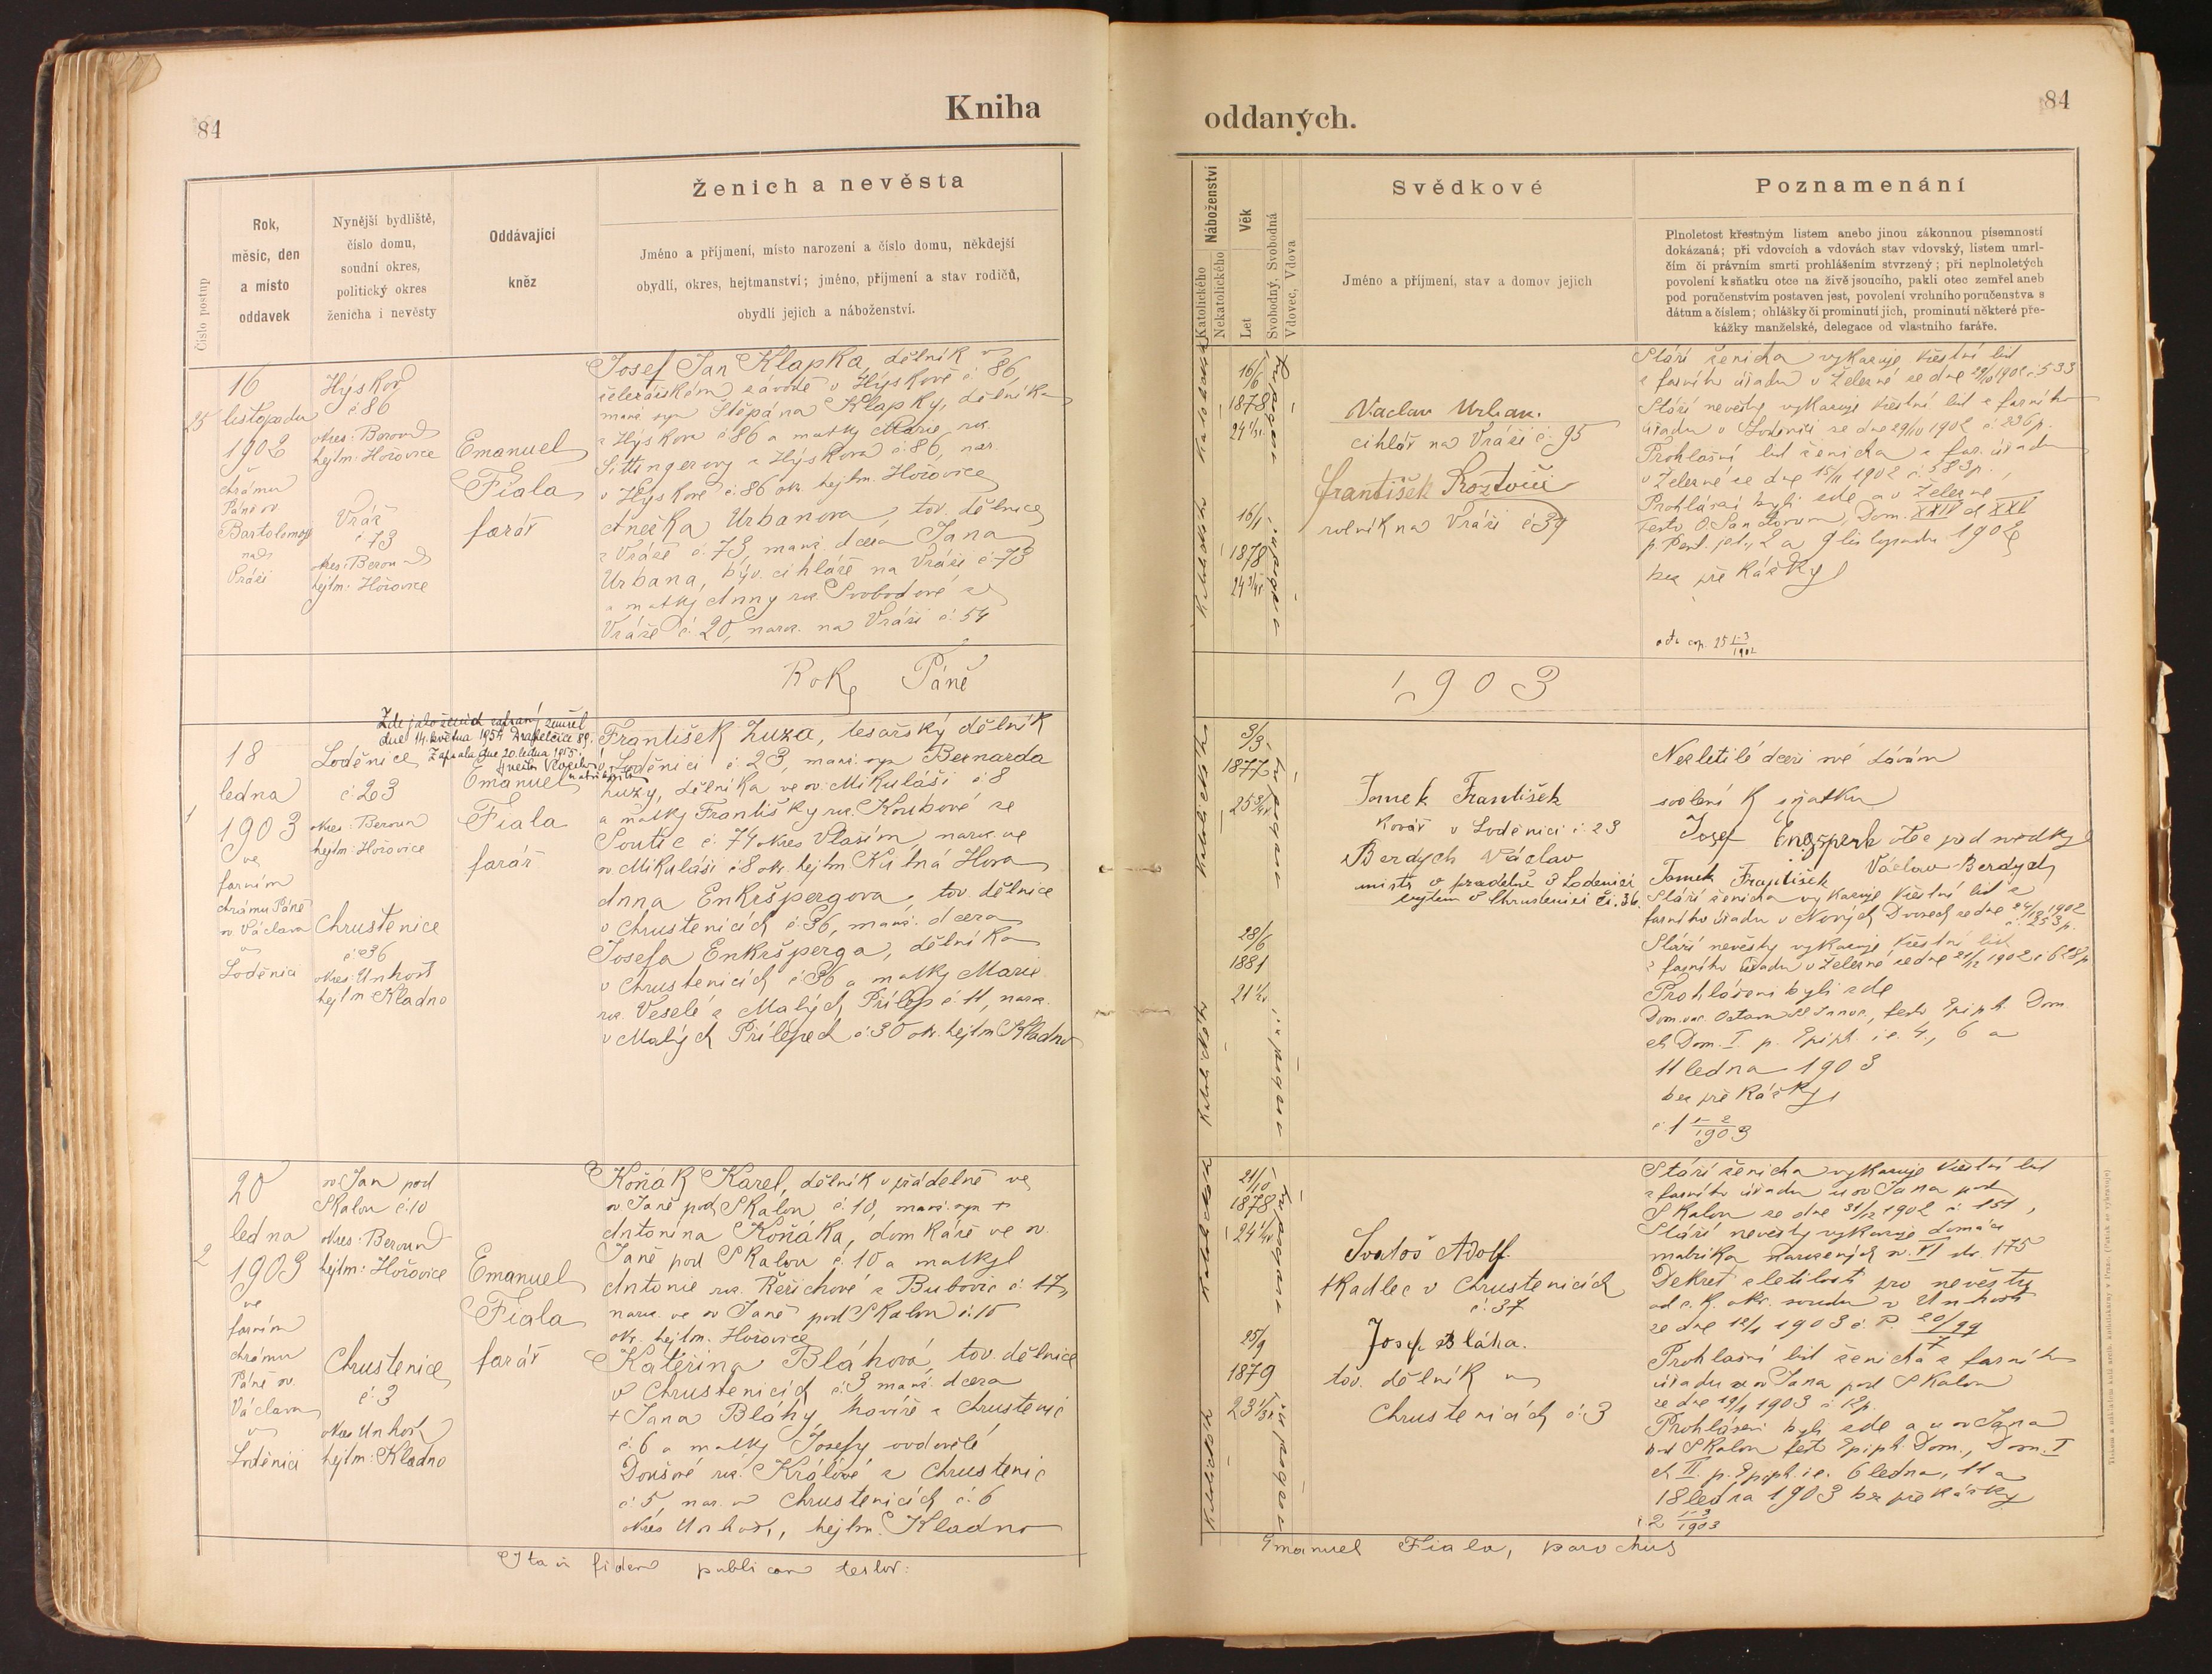 84
Kniha
Číslo postup
Rok,
měsíc, den
a místo
oddavek
Nynější bydliště,
číslo domu,
soudní okres,
politický okres
ženicha i nevěsty
Oddávající
kněz
Ženich a nevěsta
Jméno a příjmení, místo narození a číslo domu, někdejší
obydlí, okres, hejtmanství; jméno, příjmení a stav rodičů,
obydlí jejich a náboženství.
25
16
listopadu
1902
chrámu
Páně sv.
Bartoloměje
na
Vráži
Hýskov
č 86
okres: Beroun
hejtm: Hořovice
Vráž
č 73
okres: Beroun
hejtm: Hořovice
Emanuel
Fiala
farář
Josef Jan Klapka, dělník v
železářském závodě v Hýskově č 86,
manž. syn Štěpána Klapky, dělníka
z Hýskova č 86 a matky Marie roz.
z Hýskova č 86, nar.
v Hýskově č 86 ok. hejtm. Hořovice
Anežka Urbanova, tov. dělnice
z Vráže č. 73, manž. dcera Jana
Urbana, býv. cihláře na Vráži č 73
a matky Anny roz. Svobodové z
Vráže č. 20, naroz. na Vráži č. 54
Roku Páně
Zde jako ženich zapsaný zemřel
dne 14. května 1954
Zapsala dne 20. ledna 1955.
1
18
ledna
1903
ve
farním
chrámu Páně
sv Václava
v
Loděnici
Loděnice
č 23
okres: Beroun
hejtm: Hořovice
Chrustenice
č 36
okres: Unhošť
hejtm Kladno
Emanuel
Fiala
farář
František Luza, tesařský dělník
v Loděnici č 23, manž. syn Bernarda
Luzy, dělníka ve sv. Mikuláši č 8
a matky Františky roz. Koubové ze
Soutic č. 74 okres Vlašim, naroz. ve
sv Mikuláši č 8 ok. hejtm Kutná Hora
Anna Enkršpergova, tov. dělnice
v Chrustenicích č 36, manž. dcera
Josefa Enkršperga, dělníka
v Chrustenicích č 36 a matky Marie
roz. Veselé z Malých Přílep č. 11, naroz.
v Malých Přílepech č 30 ok. hejtm Kladno
2
20
ledna
1903
ve
farním
chrámu
Páně sv.
Václava
v
Loděnici
sv Jan pod
Skalou č. 10
okres: Beroun
hejtm: Hořovice
Chrustenice
č. 3
okres Unhošť
hejtm: Kladno
Emanuel
Fiala
farář
Koňák Karel, dělník v přádelně ve
sv Janě pod Skalou č. 10, manž. syn +
Antonína Koňáka, domkáře ve sv.
Janě pod Skalou č. 10 a matky
Antonie roz. Řeřichové z Bubovic č. 17,
naroz. ve sv Janě pod Skalou č. 10
ok. hejtm. Hořovice
Kateřina Bláhová, tov. dělnice
v Chrustenicích č. 3 manž. dcera
+ Jana Bláhy, havíře z Chrustenic
č. 6 a matky Josefy ovdovělé
Doušové roz. Králové z Chrustenic
č. 5, nar. v Chrustenicích č. 6
okres Unhošť, hejtm. Kladno
Ita in fidem publicam testor:
84
oddaných.
Náboženství
Katolického
Nekatolického
Věk
Let
Svobodný, Svobodná
Vdovec, Vdova
Svědkové
Jméno a příjmení, stav a domov jejich
Poznamenání
Plnoletost křestným listem anebo jinou zákonnou písemností
dokázaná; při vdovcích a vdovách stav vdovský, listem umrl-
čím či právním smrti prohlášením stvrzený; při neplnoletých
povolení k sňatku otce na živě jsoucího, pakli otec zemřel aneb
pod poručenstvím postaven jest, povolení vrchního poručenstva s
dátum a číslem; ohlášky či prominutí jich, prominutí některé pře-
kážky manželské, delegace od vlastního faráře.
16/6
1878
16/1
1878
Václav Urban.
cihlář na Vráži č. 95
František
rolník na Vráži č 34
Stáří ženicha vykazuje křestní list
z farního úřadu v Železné ze dne 29/10 1902 č 533
Stáří nevěsty vykazuje křestní list z farního
úřadu v Loděnici ze dne 29/10 1902 č 236 p.
Prohlašní list ženicha z far. úřadu
v Železné ze dne 15/11 1902 č 583 p.
Prohlášeni byli zde a v Železné
Festo O Sanctorum, Dom. XXIV et XXV
p. Pent. 2 a 9 listopadu 1902
bez překážky
1903
3/3
1877
28/6
1881
Tomek František
kovář v Loděnici č. 23
Berdych Václav
mistr v přadelně v Loděnici
bytem v Chrustenici čš. 36.
Nezletilé dceři mé dávám
svolení k sňatku
Josef Engšperk otec pod nvědky
Václav Berdych
Tomek František
Stáří ženicha vykazuje křestní list z
farního úřadu v Nových Dvorech ze dne 24/12 1902
č. 253 p.
Stáří nevěsty vykazuje křestní list
z farního úřadu v Železné ze dne 21/12 1902 č 628 p
Prohlášeni byli zde
Dom. vac. festo Epiph. Dom.
et Dom. I p. Epiph. i. e. 4., 6 a
11 ledna 1903
bez překážky
21/10
1878
25/9
1879
Svatoš Adolf.
tkadlec v Chrustenicích
č. 37
Josef Bláha.
tov. dělník v
Chrustenicích č. 3
Stáří ženicha vykazuje křestní list
z farního úřadu u sv Jana pod
Skalou ze dne 31/12 1902 č 151,
Stáří nevěsty vykazuje domácí
matrika narozených sv. VI str. 175
Dekret zletilosti pro nevěstu
od c. k. okr. soudu v Unhošti
ze dne 12/1 1903 č. P. 20/99
Prohlašní list ženicha z farního
úřadu u sv Jana pod Skalou
ze dne 19/1 1903 č 12 p.
Prohlášeni byli zde a u sv Jana
pod Skalou fest Epiph. Dom., Dom. I
et II. p. Epiph. i. e. 6 ledna, 11 a
18 ledna 1903 bez překážky
Emanuel Fiala, parochus